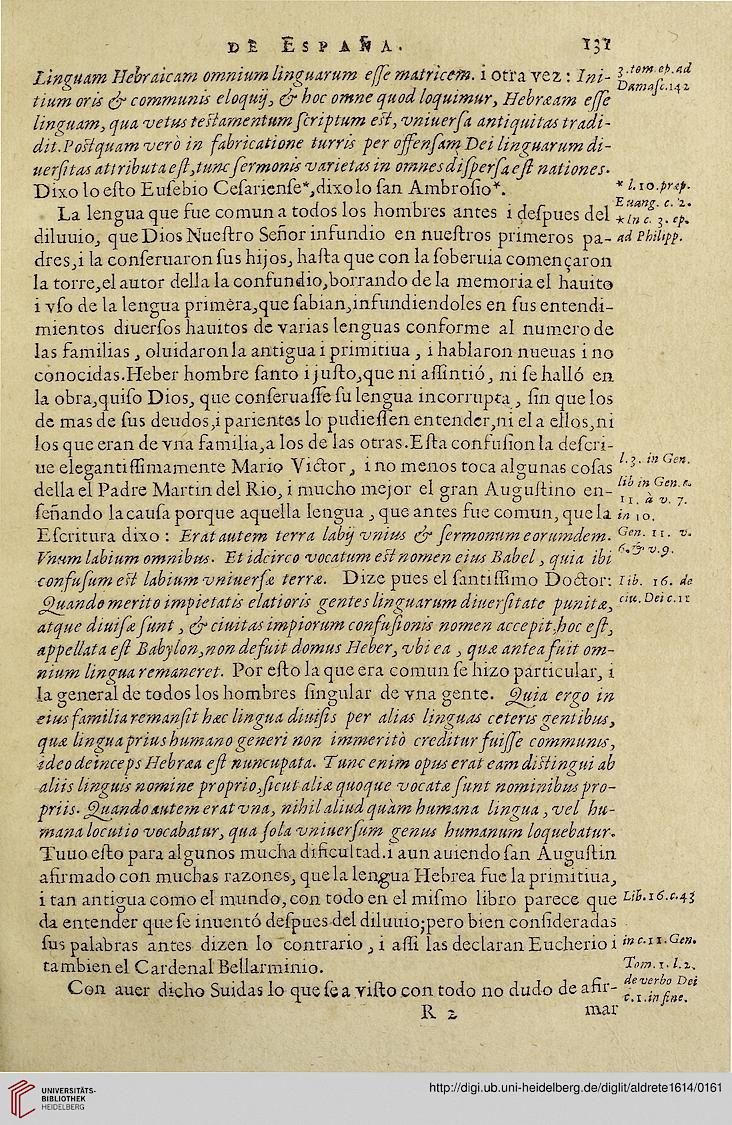 DE ESPAÑA. 131
Linguam Hebraicam omnium linguarum eſſe matricem. i otra vez: Ini-
tium oris & communis eloquij, & hoc omne quod loquimur, Hebræam eſſe
linguam, qua vetus teſtamentum ſcriptum eſt, vniuerſa antiquitas tradi-
dit. Poſtquam verò in fabricatione turris per offenſam Dei linguarum di-
uerſitas attributa eſt, tunc ſermonis varietas in omnes diſperſa eſt nationes.
Dixo lo eſto Euſebio Ceſarienſe*, dixolo ſan Ambroſio*.
La lengua que fue comun a todos los hombres antes i deſpues del
diluuio, que Dios Nueſtro Señor infundio en nueſtros primeros pa-
dres, i la conſeruaron ſus hijos, haſta que con la ſoberuia començaron
la torre, el autor della la confundio, borrando de la memoria el hauito
i vſo de la lengua primèra, que ſabian, infundiendoles en ſus entendi-
mientos diuerſos hauitos de varias lenguas conforme al numero de
las familias, oluidaron la antigua i primitiua, i hablaron nueuas i no
conocidas. Heber hombre ſanto i juſto, que ni aſſintió, ni ſe halló en
la obra, quiſo Dios, que conſeruaſſe ſu lengua incorrupta, ſin que los
de mas de ſus deudos, i parientes lo pudieſſen entender, ni el a ellos, ni
los que eran de vna familia, a los de las otras. Eſta confuſion la deſcri-
ue elegantiſſimamente Mario Victor, i no menos toca algunas coſas
della el Padre Martin del Rio, i mucho mejor el gran Auguſtino en-
ſeñando la cauſa porque aquella lengua, que antes fue comun, que la
Eſcritura dixo: Erat autem terra labij vnius & ſermonum eorumdem.
Vnum labium omnibus. Et idcirco vocatum eſt nomen eius Babel, quia ibi
confuſum eſt labium vniuerſæ terræ. Dize pues el ſantiſſimo Doctor:
Quando merito impietatis elatioris gentes linguarum diuerſitate punitæ,
atque diuiſæ ſunt, & ciuitas impiorum confuſionis nomen accepit, hoc eſt,
appellata eſt Babylon, non defuit domus Heber, vbi ea, quæ antea fuit om-
nium lingua remaneret. Por eſto la que era comun ſe hizo particular, i
la general de todos los hombres ſingular de vna gente. Quia ergo in
eius familia remanſit hæc lingua diuiſis per alias linguas ceteris gentibus,
quæ lingua prius humano generi non immeritò creditur fuiſſe communis,
ideo deinceps Hebræa eſt nuncupata. Tunc enim opus erat eam diſtingui ab
aliis linguis nomine proprio, ſicut aliæ quoque vocatæ ſunt nominibus pro-
priis. Quando autem erat vna, nihil aliud quàm humana lingua, vel hu-
mana locutio vocabatur, qua ſola vniuerſum genus humanum loquebatur.
Tuuo eſto para algunos mucha dificultad. i aun auiendo ſan Auguſtin
afirmado con muchas razones, que la lengua Hebrea fue la primitiua,
i tan antigua como el mundo, con todo en el miſmo libro parece que
da entender que ſe inuentó deſpues del diluuio; pero bien conſideradas
ſus palabras antes dizen lo contrario, i aſſi las declaran Eucherio i
tambien el Cardenal Bellarminio.
Con auer dicho Suidas lo que ſe a viſto con todo no dudo de afir-
R 2 mar
3. tom. ep. ad
Damaſc. 142
* l. 10. præp.
Euang. c. 2.
* In c. 3. ep.
ad Philipp.
l. 3. in Gen.
lib in Gen. c.
11. à v. 7.
in 10.
Gen. 11. v.
6. & v. 9.
lib. 16. de
ciu. Dei c. 11
Lib. 16. c. 43
in c. 11. Gen.
Tom. 1. l. 2.
de verbo Dei
c. 1. in fine.
UNIVERSITÄTS-
BIBLIOTHEK
HEIDELBERG
http://digi.ub.uni-heidelberg.de/diglit/aldrete1614/0161